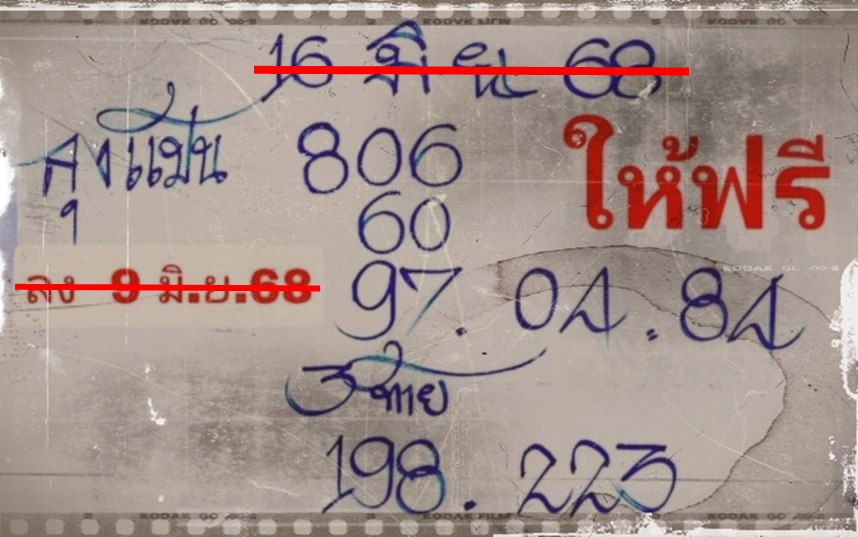 16 มิ.ย 68
ลุงแป๋น 806
ให้ฟรี
60
ลง 9 มิ.ย.68
97. 04. 84
3 ท้าย
198. 223